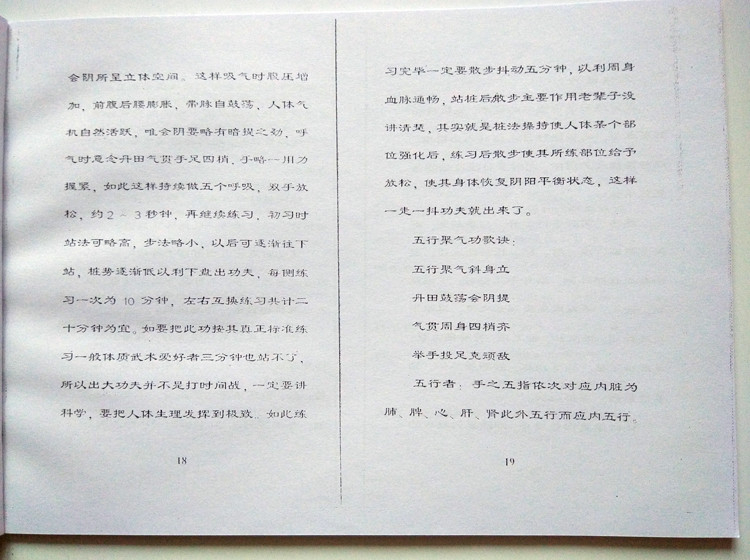 会阴所呈立体空间。这样吸气时腹压增
加，前腹后腰膨胀，带脉自鼓荡，人体气
机自然活跃。唯会阴要略有暗提之劲，呼
气时意念丹田气贯手足四梢，手略一用力
握紧，如此这样持续做五个呼吸，双手放
松，约2～3秒钟，再继续练习，初习时
站法可略高，步法略小，以后可逐渐往下
站，桩势逐渐低以利下盘出功夫，每侧练
习一次为10分钟，左右互换练习共计二
十分钟为宜。如要把此功按其真正标准练
习一般体质武术爱好者三分钟也站不了，
所以出大功夫并不是打时间战，一定要讲
科学，要把人体生理发挥到极致。如此练
18
习完毕一定要散步抖动五分钟，以利周身
血脉通畅，站桩后散步主要作用老辈子没
讲清楚，其实就是桩法操持使人体某个部
位强化后，练习后散步使其所练部位给予
放松，使其身体恢复阴阳平衡状态，这样
一走一抖功夫就出来了。
五行聚气功歌诀：
五行聚气斜身立
丹田鼓荡会阴提
气贯周身四梢齐
举手投足克顽敌
五行者：手之五指依次对应内脏为
肺、脾、心、肝、肾此外五行而应内五行。
19